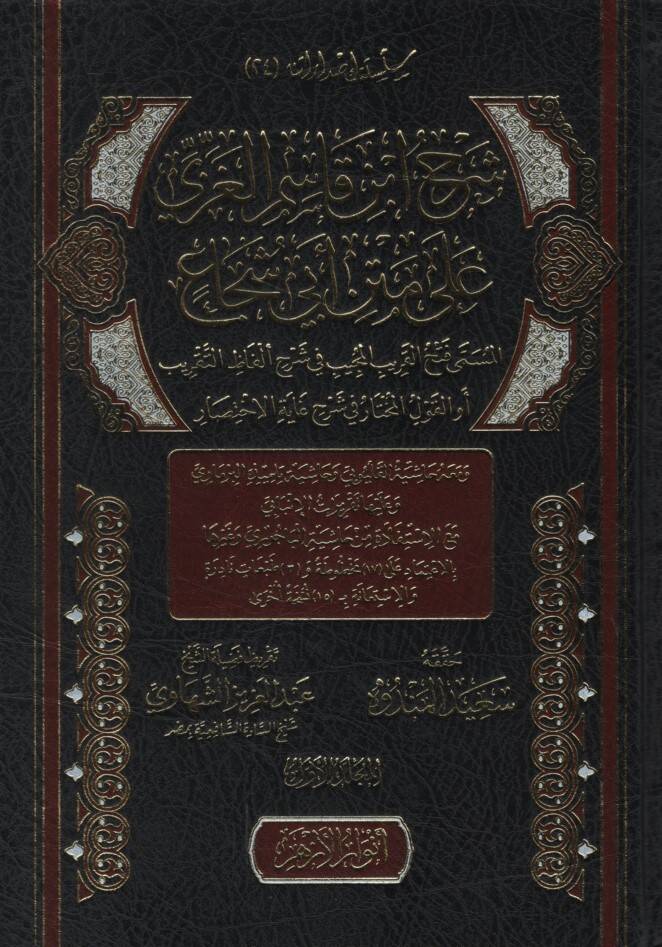 سلسلة إصداراتنا (٢٤)
شَرْحُ ابْنِ قَاسِمِ الغَزِّيِّ
عَلَى مَتْنِ أَبِي شُجَاعٍ
المُسَمَّى فَتْحُ القَرِيبِ المُجِيبِ فِي شَرْحِ أَلْفَاظِ التَّقْرِيبِ
أَوِ القَوْلُ المُخْتَارُ فِي شَرْحِ غَايَةِ الاخْتِصَارِ
وَمَعَهُ حَاشِيَةُ القَلْيُوبِيِّ وَحَاشِيَةُ تِلْمِيذِهِ البِرْمَاوِيِّ
وَعَلَيْهَا تَقْرِيرَاتُ الإِنْبَابِيِّ
مَعَ الاسْتِفَادَةِ مِنْ حَاشِيَةِ البَاجُورِيِّ وَغَيْرِهَا
بِالاعْتِمَادِ عَلَى (١٧) مَخْطُوطَةً وَ (٣) طَبَعَاتٍ نَادِرَةٍ
وَالاسْتِعَانَةِ بِـ (١٥) نُسْخَةً أُخْرَى
حَقَّقَهُ
سَعِيد المَنْدُوه
تقريظ فضيلة الشيخ
عبد العزيز الشهاوي
شيخ السادة الشافعية بمصر
المجلد الأول
أنوار الأزهر